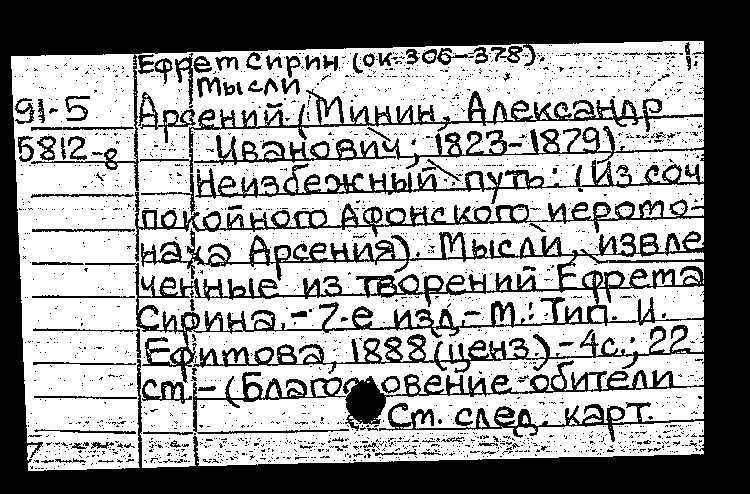 Ефрет Сирин (ок. 306-378). 1.
Мысли
91-5 Арсений (Минин, Александр
5812-8 Иванович; 1823-1879).
Неизбежный путь: (Из соч
покойного Афонского иерото-
наха Арсения). Мысли, извле
ченные из творений Ефрета
Сирина.- 7-е изд.- М.: Тип. И.
Ефитова, 1888 (ценз.).- 4с.; 22
ст.- (Благословение обители
Ст. след. карт.